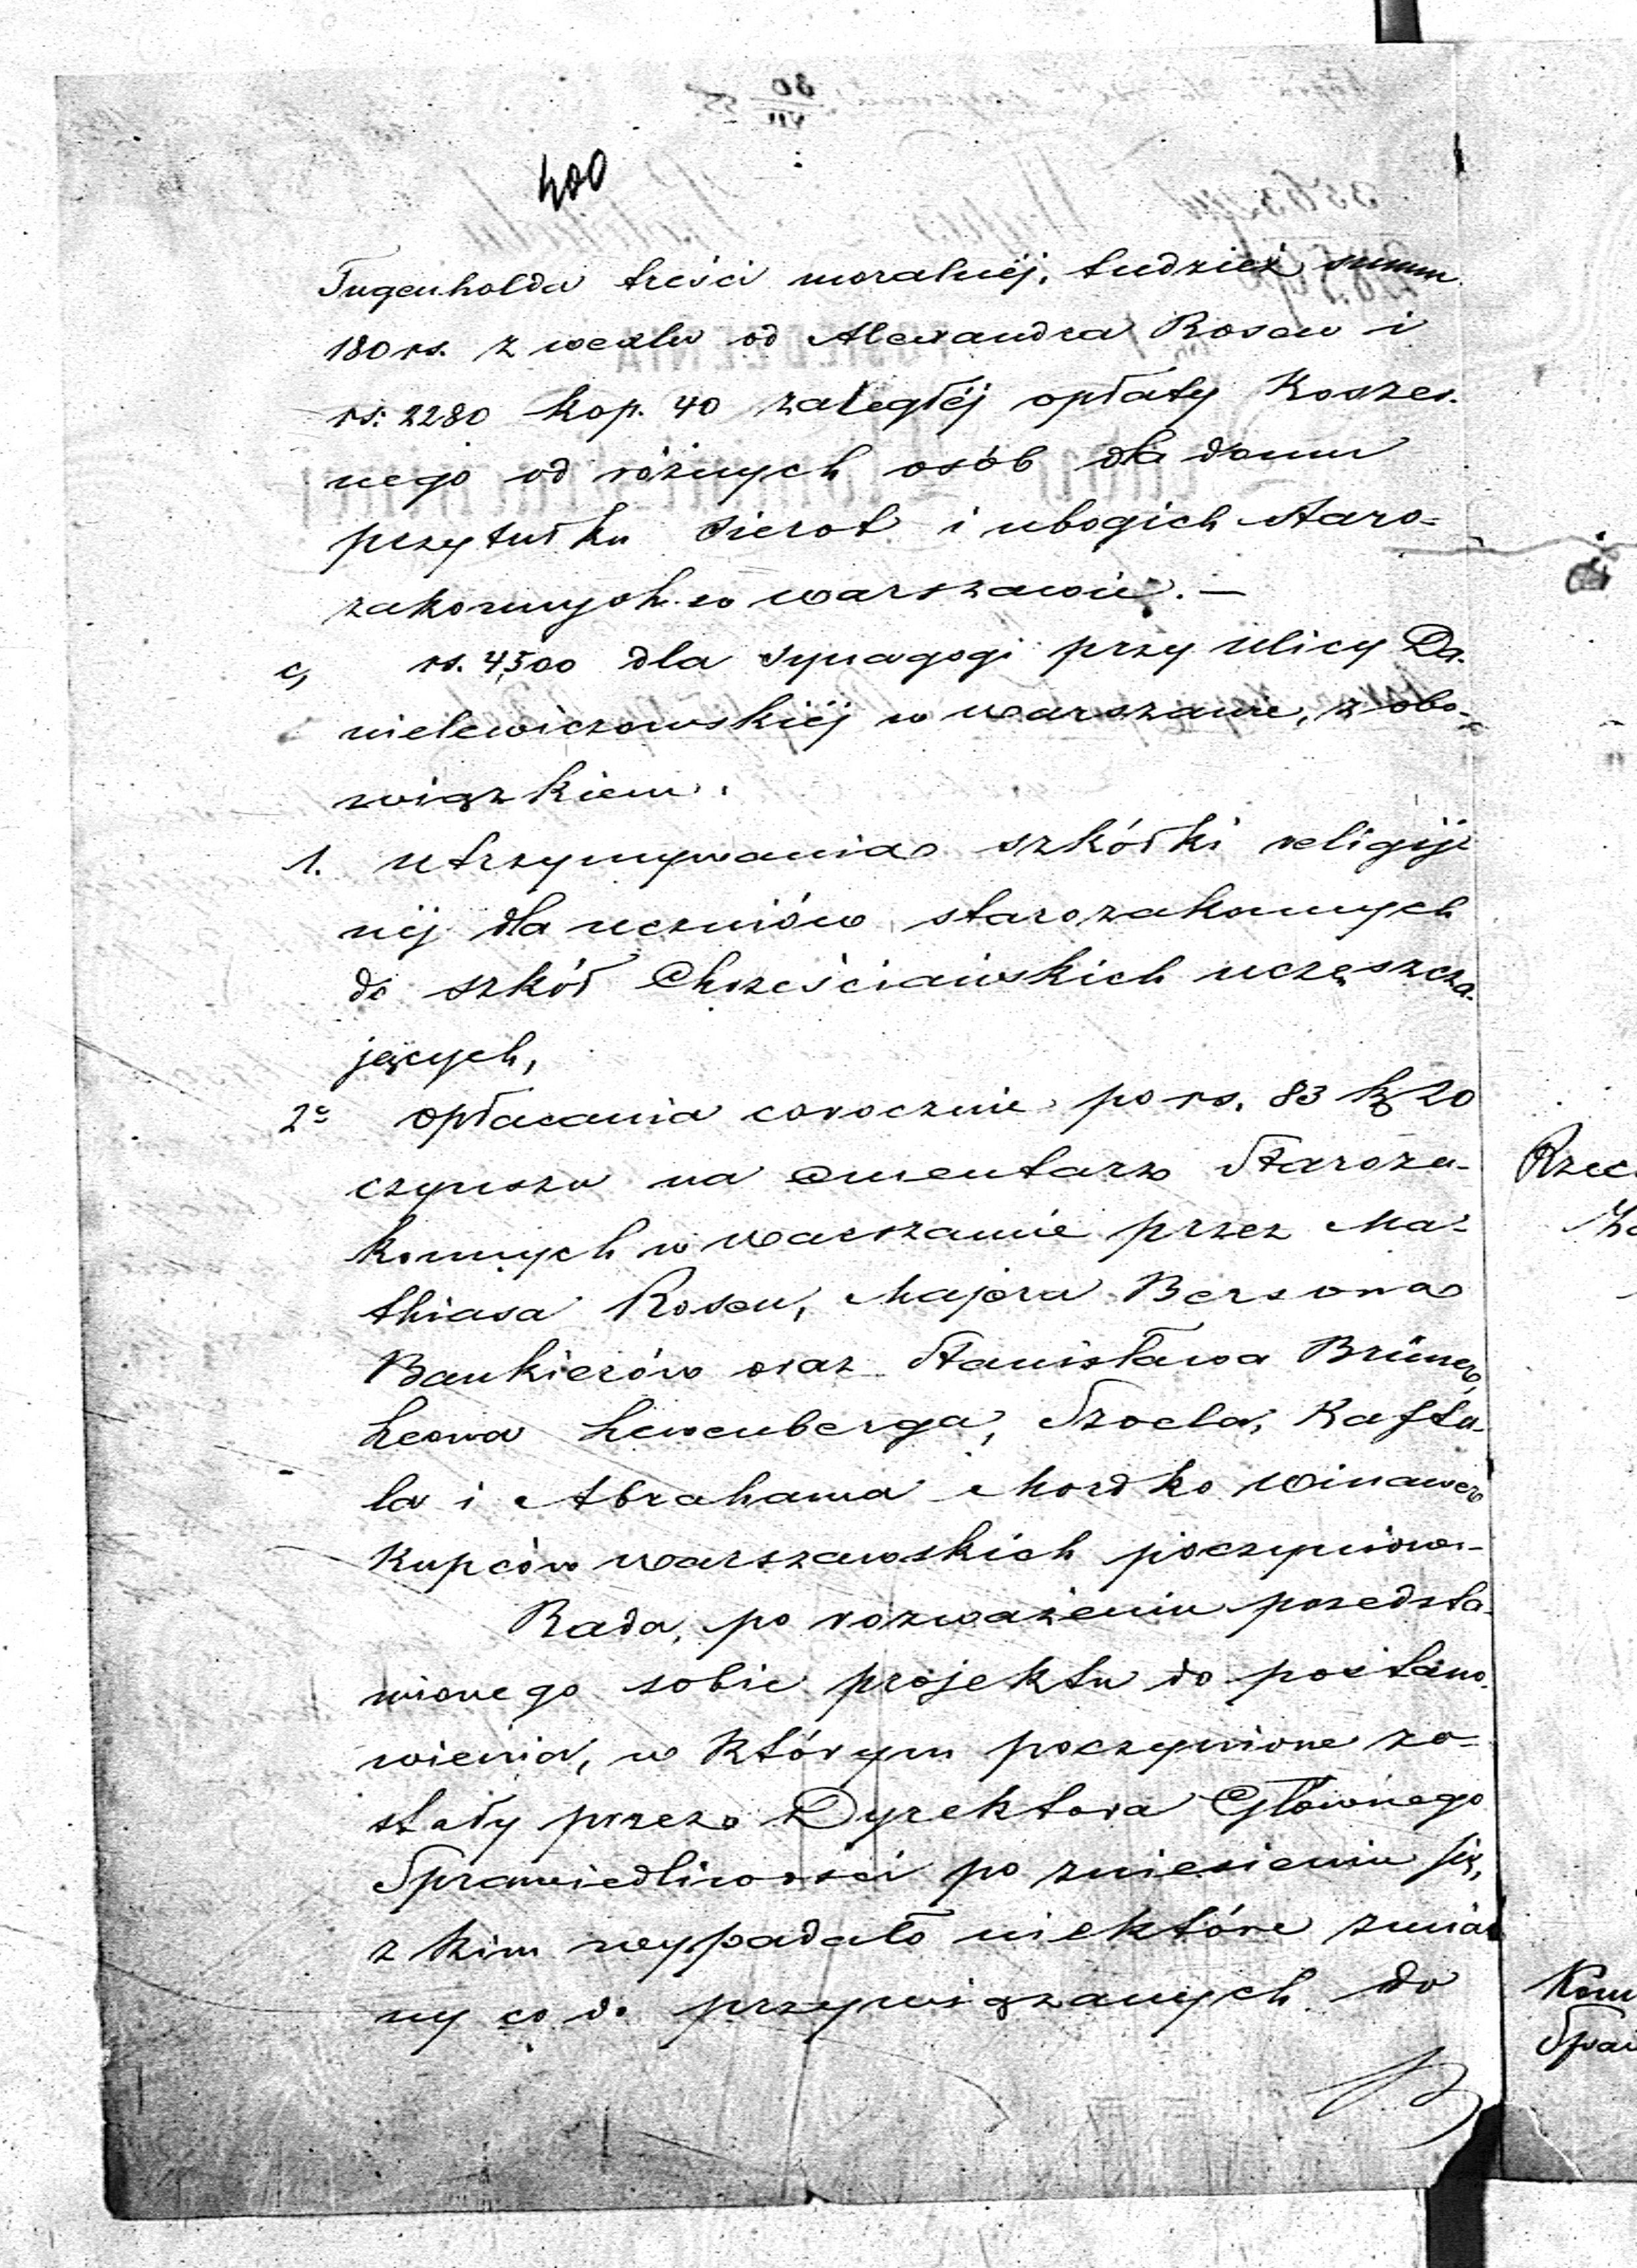 400
Tugenholda treści moralnéj, tudzież summ
180 rs. z wexlu od Alexandra Rosen i
rs. 2280 kop. 40 zaległéj opłaty Koszer-
nego od różnych osób dla domu
przytułku sierot i ubogich staro-
zakonnych w warszawie. —
c, rs. 4500 dla synagogi przy ulicy Da-
nielewiczowskiéj w warszawie, z obo-
wiązkiem.
1. utrzymywania szkółki religij-
néj dla uczniów starozakonnych
do szkół Chrześciańskich uczęszcza-
jących,
2e opłacania corocznie po rs. 83 k 20
czynszu na cmentarz Staroza-
konnych w warszawie przez Ma-
thiasa Rosen, Majera Bersona
Bankierów oraz Stanisława Brüner,
Leona Lewenberga, Szoela, Kaftu-
la i Abrahama Mordko Winawer
Kupców warszawskich poczynione.
Rada, po rozważeniu przedsta-
wionego sobie projektu do postano-
wienia, w którym poczynione zo-
stały przez Dyrektora Głównego
Sprawiedliwości po zniesieniu się,
z kim wypadało niektóre zmia
ny co do przywiązanych do
Rzec
Kom
Spraw